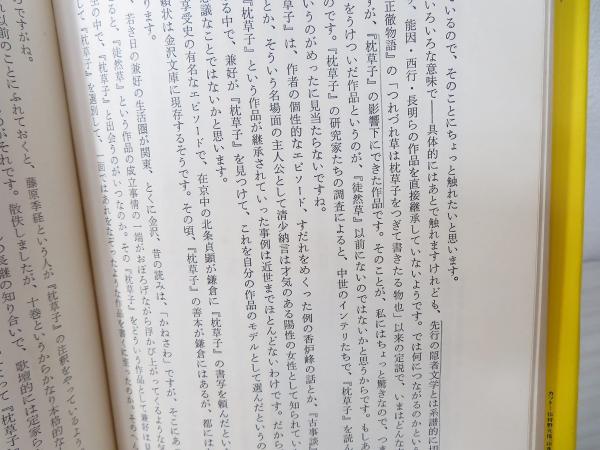 いるので、そのことにちょっと触れたいと思います。
いろいろな意味で――具体的にはあとで触れますけれども、先行の隠者文学とは系譜的に切
、能因・西行・長明らの作品を直接継承していないようです。では何につながるのかという
『正徹物語』の「つれづれ草は枕草子をつぎて書きたる物也」以来の定説で、いまはどんな
すが、『枕草子』の影響下にできた作品です。そのことが、私にはちょっと驚きなので、つま
をうけついだ作品というのが、『徒然草』以前にないのではないかと思うからです。もしあ
のです。『枕草子』の研究家たちの調査によると、中世のインテリたちで、『枕草子』を読ん
というのがめったに見当たらないですね。
草子』は、作者の個性的なエピソード、すだれをめくった例の香炉峰の話とか、『古事談』
とか、そういう名場面の主人公として清少納言は才気のある陽性の女性として知られてい
草子』という作品が継承されていった事例は近世までほとんどないわけです。だから
る中で、兼好が『枕草子』を見つけて、これを自分の作品のモデルとして選んだというの
思議なことではないかと思います。
享受史の有名なエピソードで、在京中の北条貞顕が鎌倉に『枕草子』の書写を頼んだとい
頼状は金沢文庫に現存するそうです。その頃、『枕草子』の善本が鎌倉にはあるが、都には
ります。
、若き日の兼好の生活圏が関東、とくに金沢、昔の読みは、「かねさわ」ですが、そこにあ
ると、『徒然草』という作品の成立事情の一端がおぼろげながら浮かび上がってくるような
生の中で、『枕草子』と出会うのがいつなのか。その『枕草子』をどういう作品として兼好は見
して、『枕草子』を選別して、一面ではあれをなぞったような作品を書くに至ったか。
らですがね。
れ以前のことにふれておくと、藤原季経という人が『枕草子』の注釈をやっているよう
のがそれです。散佚しましたが、十巻というからかなり本格的な
の長継の知り合いで、歌壇的には定家ら